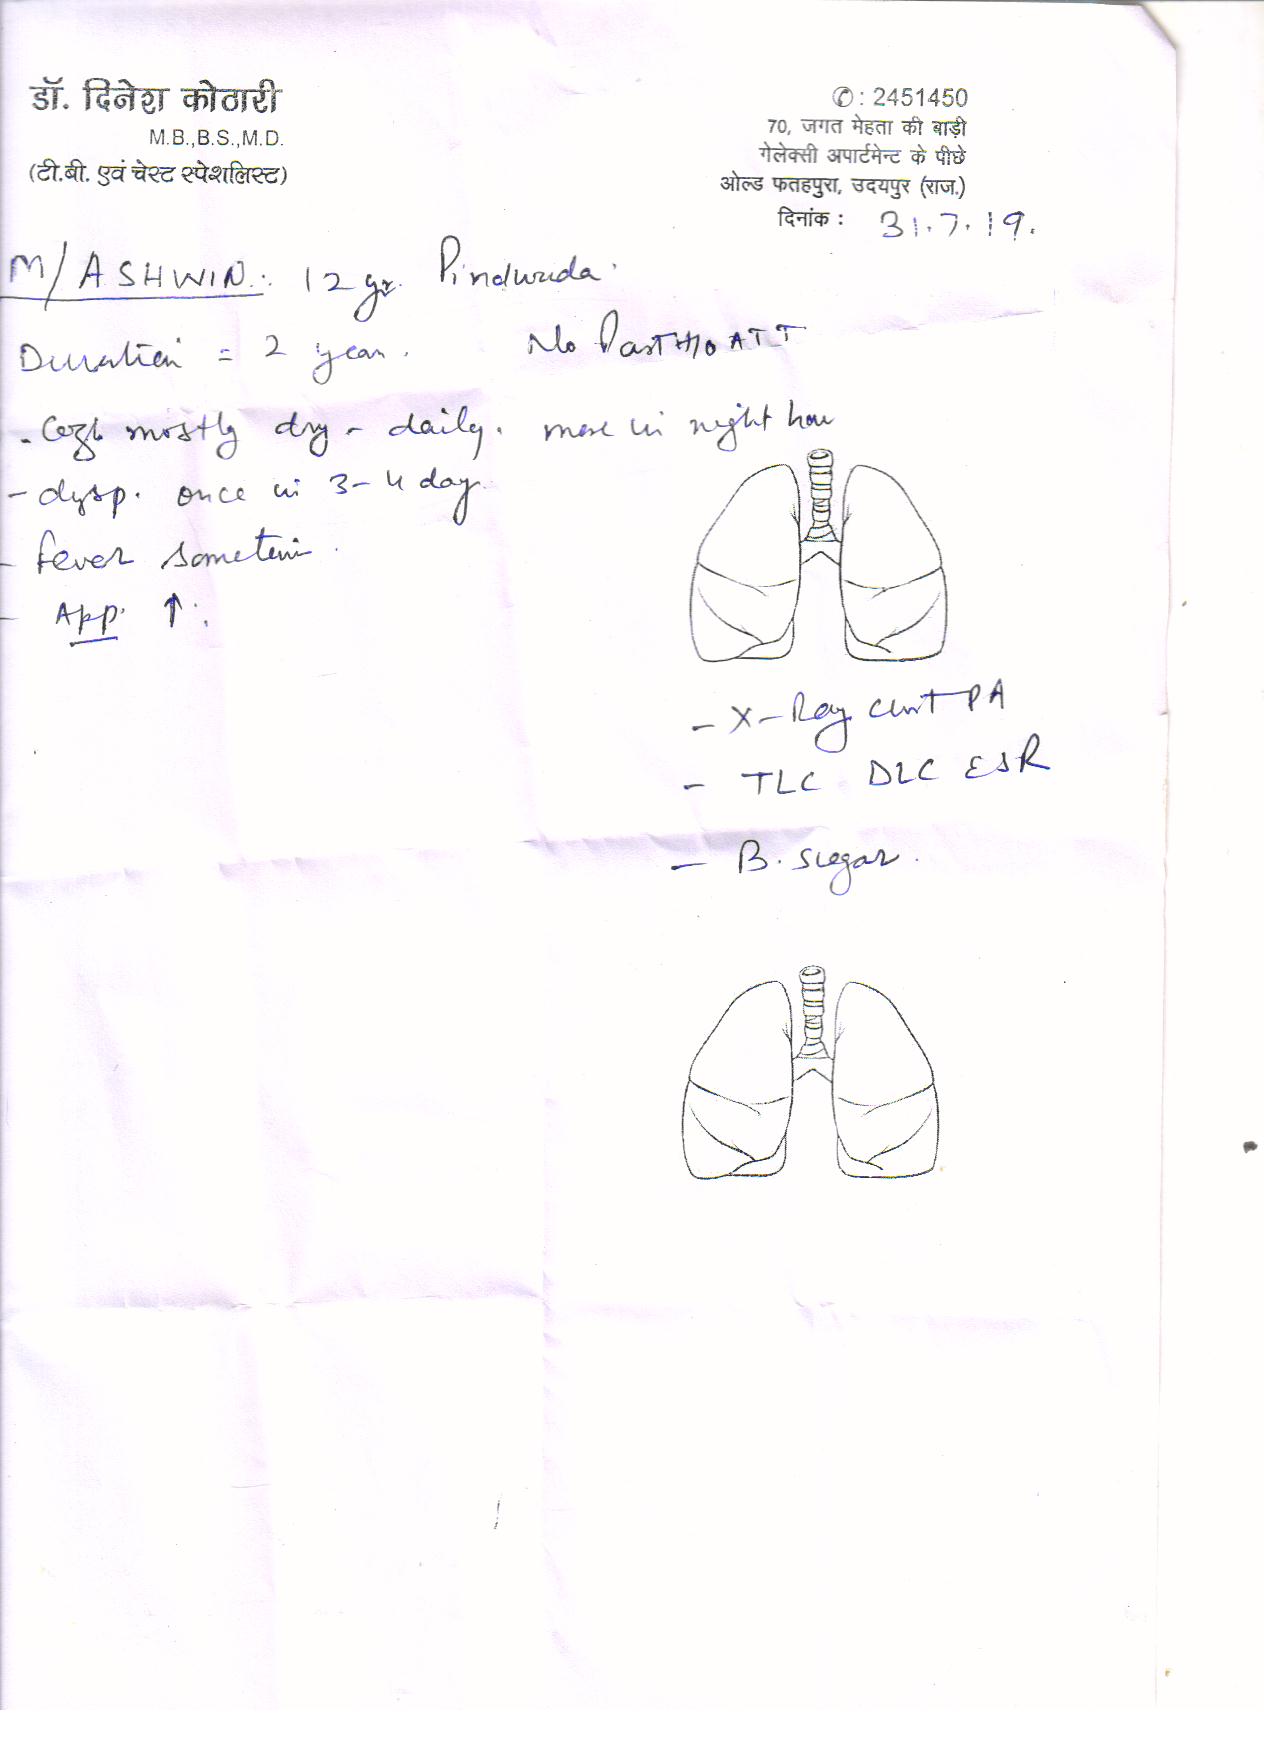 डॉ. दिनेश कोठारी
M.B.,B.S.,M.D.
(टी.बी. एवं चेस्ट स्पेशलिस्ट)
✆ : 2451450
70, जगत मेहता की बाड़ी
गेलेक्सी अपार्टमेन्ट के पीछे
ओल्ड फतहपुरा, उदयपुर (राज.)
दिनांक : 31.7.19.
M/ASHWIN. 12 yr. Pindwada.
Duration = 2 year. No Past H/o ATT
- Cough mostly dry - daily. more in night hour
- dysp. once in 3-4 day
- fever sometimes
- App. ↑
- X-Ray chest PA
- TLC DLC ESR
- B. sugar.